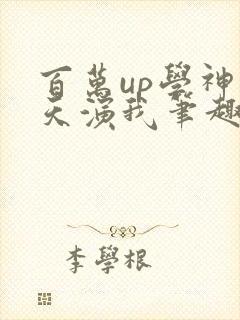 百萬up學神
天演我筆趣
李學根